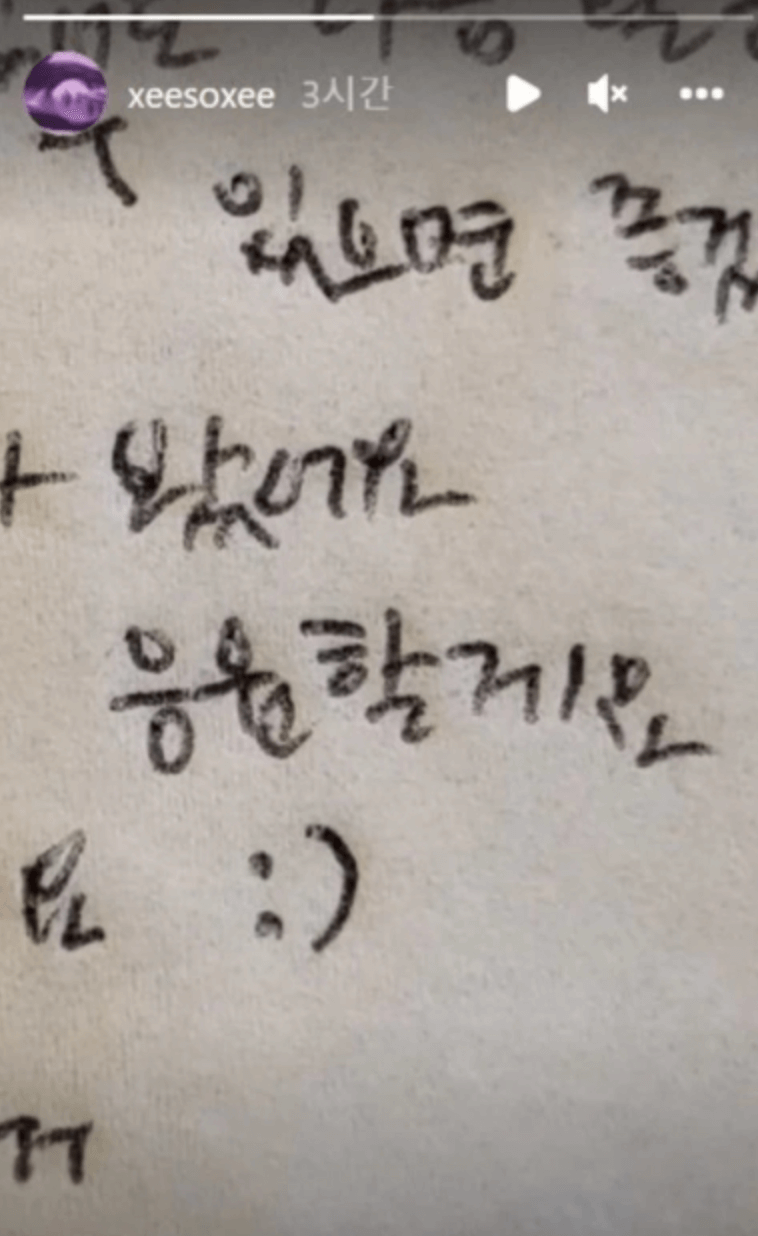 xeesoxee 3시간
있으면 즐겁
봤어요
응원할게요
요 :)